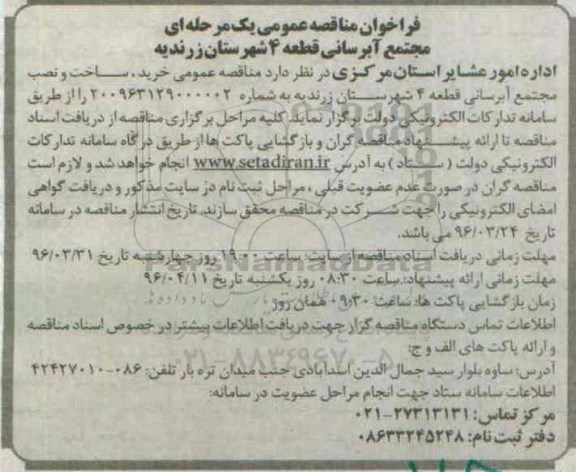 فراخوان مناقصه عمومی یک مرحله ای
مجتمع آبرسانی قطعه ۴ شهرستان زرندیه
اداره امور عشایر استان مرکزی در نظر دارد مناقصه عمومی خرید، ساخت و نصب
مجتمع آبرسانی قطعه ۴ شهرستان زرندیه به شماره ۲۰۰۹۶۳۱۲۹۰۰۰۰۰۲ را از طریق
سامانه تدارکات الکترونیکی دولت برگزار نماید. کلیه مراحل برگزاری مناقصه از دریافت اسناد
مناقصه تا ارائه پیشنهاد مناقصه گران و بازگشایی پاکت ها از طریق درگاه سامانه تدارکات
الکترونیکی دولت ( ستاد ) به آدرس www.setadiran.ir انجام خواهد شد و لازم است
مناقصه گران در صورت عدم عضویت قبلی ، مراحل ثبت نام در سایت مذکور و دریافت گواهی
امضای الکترونیکی را جهت شرکت در مناقصه محقق سازند. تاریخ انتشار مناقصه در سامانه
تاریخ ۹۶/۰۳/۲۴ می باشد.
مهلت زمانی دریافت اسناد مناقصه از سایت: ساعت ۱۹:۰۰ روز چهارشنبه تاریخ ۹۶/۰۳/۳۱
مهلت زمانی ارائه پیشنهاد: ساعت ۰۸:۳۰ روز یکشنبه تاریخ ۹۶/۰۴/۱۱
زمان بازگشایی پاکت ها: ساعت ۹:۳۰ همان روز
اطلاعات تماس دستگاه مناقصه گزار جهت دریافت اطلاعات بیشتر در خصوص اسناد مناقصه
و ارائه پاکت های الف و ج:
آدرس: ساوه بلوار سید جمال الدین اسدآبادی جنب میدان تره بار تلفن: ۰۸۶-۴۲۴۲۷۰۱۰
اطلاعات سامانه ستاد جهت انجام مراحل عضویت در سامانه:
مرکز تماس: ۲۷۳۱۳۱۳۱-۰۲۱
دفتر ثبت نام: ۰۸۶۳۳۲۴۵۲۴۸
ParsNamadData
۰۲۱-۸۸۳۴۹۶۷۰-۵